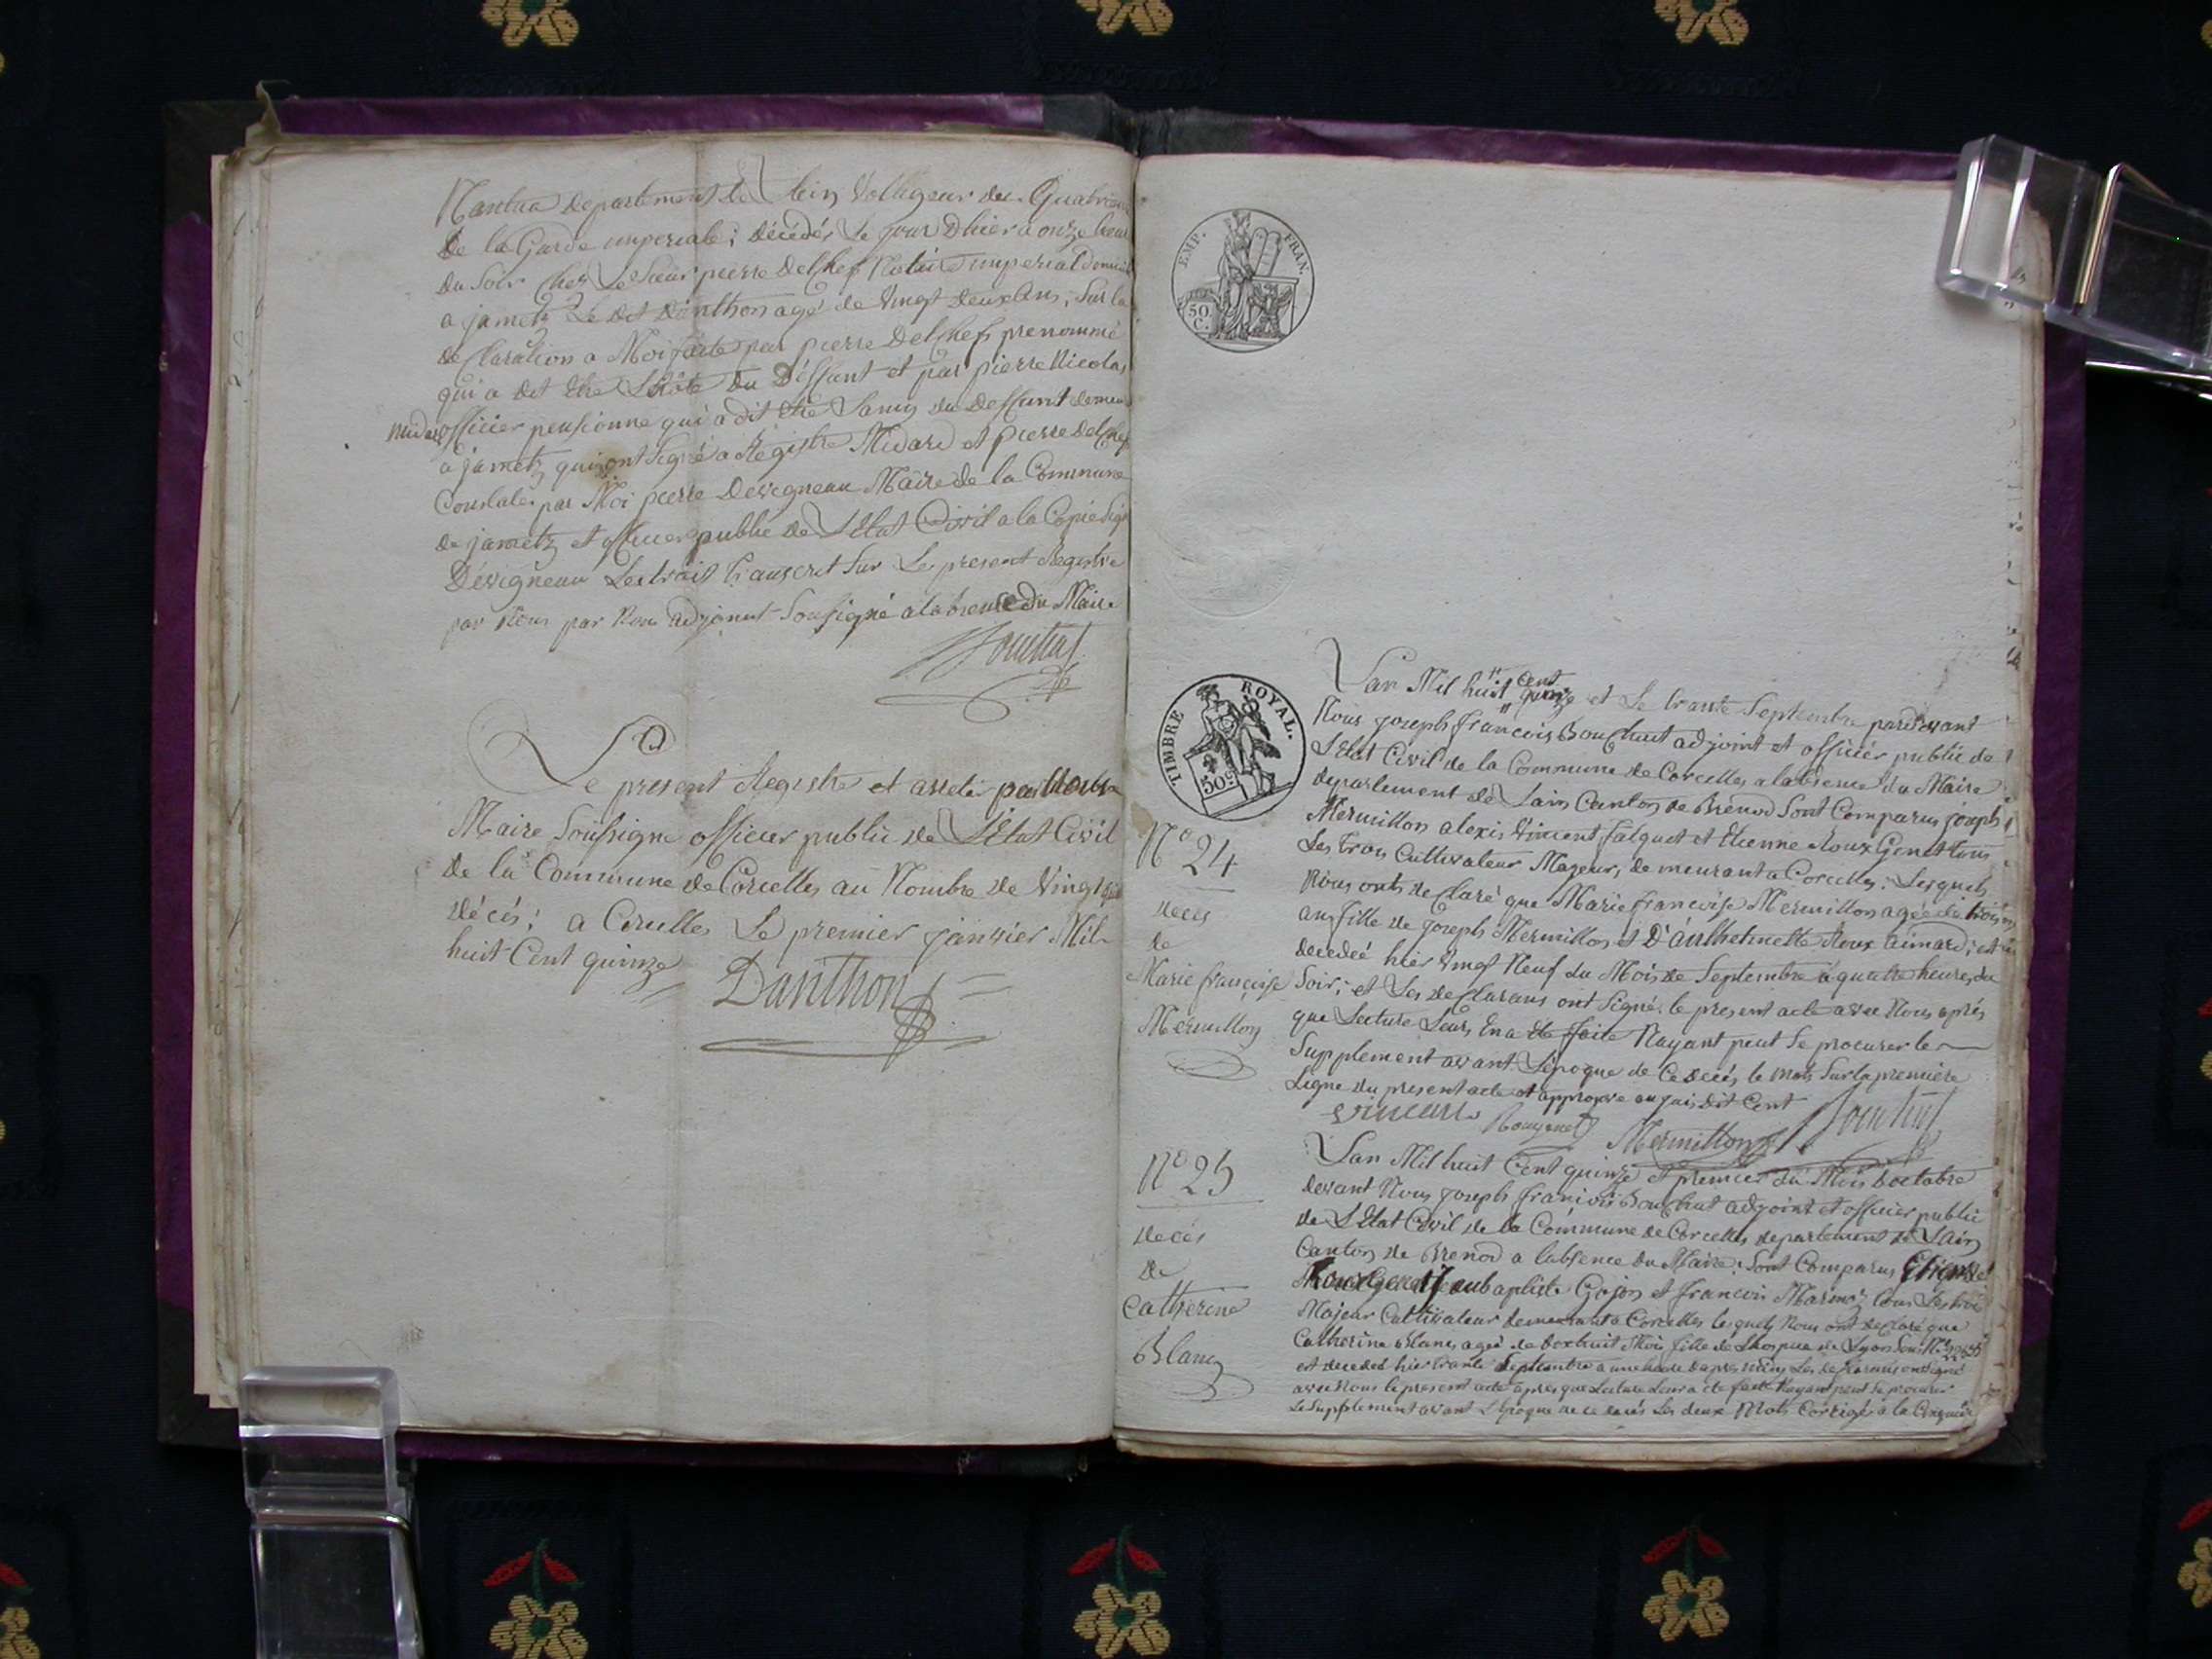 Nantua departement de Lain Voltigeur du Quatrieme
De la Garde imperiale; décédés Le jour Dhier a onze heur
Du Soir Chez Le Sieur pierre Delchef Notaire imperial
a jametz Le Dit Danthon agé de Vingt deux Ans, Sur la
declaration a Moi faite par pierre Delchef prenommé
qui a dit Etre L'hôte du Déffunt et par pierre Nicolas
Midard officier pensionné qui a dit être Lamy du deffunt demeu
a jametz qui ont Signé a Registre Midard et pierre Delchef
Constaté par Moi pierre Devigneau Maire de la Commune
de jametz et officier public de L'Etat Civil a la Copie Signé
Dévigneau Lextrait transcrit Sur Le present Registre
par Nous par Nous adjoint Sousigné a labsence du Maire
Bouchut
Le present Registre et arreté par Nous
Maire Soussigné officier public de L'Etat Civil
de la Commune de Corcelles au Nombre de Vingt
décés; a Corcelles Le premier janvier Mil
huit Cent quinze
Danthon
EMP. FRAN.
50 C.
TIMBRE ROYAL.
50 c
N° 24
decès
de
Marie françoise
Mermillon
Lan Mil huit cent quinze et Le trante Septembre pardevant
Nous joseph francois Bouchut adjoint et officiér public de
L'Etat Civil de la Commune de Corcelles a labsence du Maire
departement de Lain Canton de Brenod Sont Comparus joseph
Mermillon alexis Vincent falquet et Etienne Roux Genet tous
Les trois Cultivateur Majeurs, demeurant a Corcelles; Lesquels
Nous onts declaré que Marie francoise Mermillon agée de trois
ans fille de joseph Mermillon et D'anthelmette Roux aimard; est
decedeé hier Vingt Neuf du Mois de Septembre a quatre heures du
Soir; et Les declarans ont Signé le present acte avec Nous aprés
que Lecture Leurs En a Eté faite Nayant peut Se procurer le
Supplement avant Lépoque de Ce décés le mots Sur la premiére
Ligne du present acte et approuve ou jais dit Cent
Vincent Rouxgenet Mermillon Bouchut
N° 25
decés
de
Catherine
Blanc
Lan Mil huit Cent quinze et premier du Mois doctobre
devant Nous joseph francois Bouchut adjoint et officier public
de L'Etat Civil de la Commune de Corcelles departement de Lain
Canton de Brenod a labsence du Maire; Sont Comparus Etienne
Rouxgenet Jeanbaptiste Gojon et francois Marmoz tous Les trois
Majeur Cultivateur demeurant a Corcelles lesquels Nous ont declaré que
Catherine Blanc ageé de dexhuit Mois fille de Lhospice de Lyon Sous N°
est decedeé hier trante Septembre a une heure dapres midy, Les declarans ont Signé
avec Nous le present acte apres que Lecture Leur a eté faite Nayant peut Se procurer
Le Supplement avant L'Epoque de ce decés Les deux Mots Corrigés a la Cinquiéme